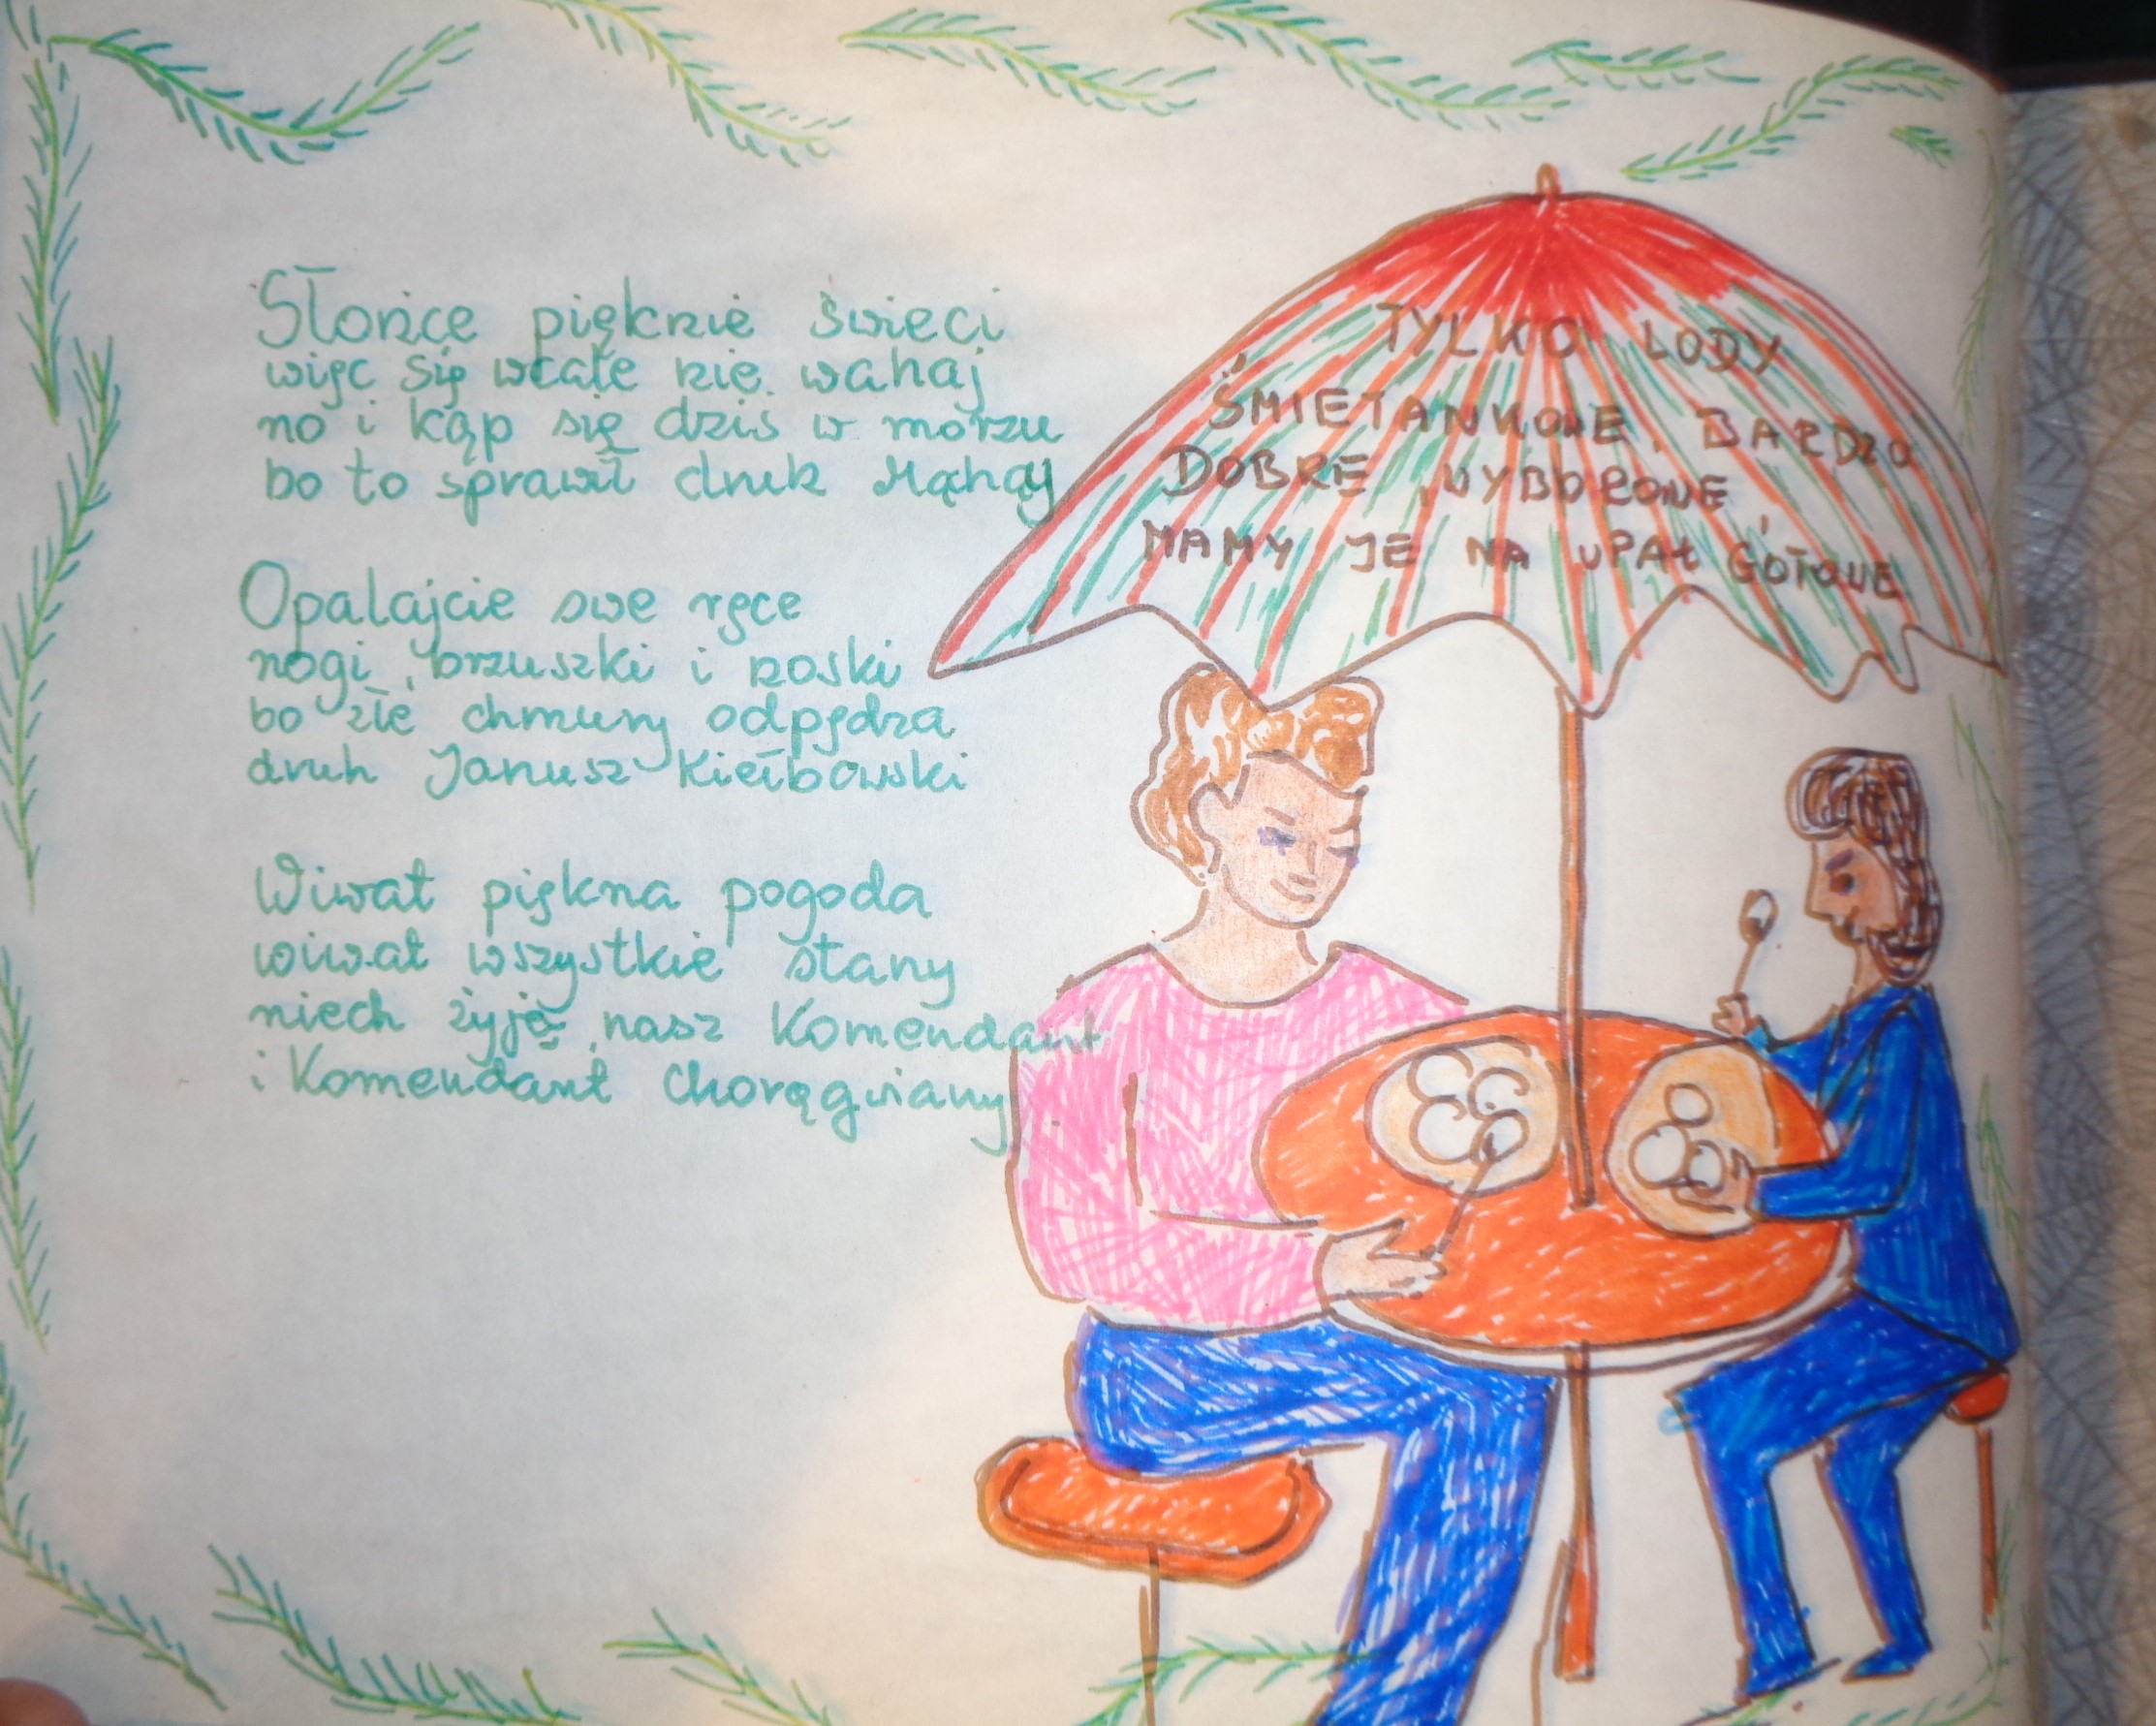 Słońce pięknie świeci
więc się wcale nie wahaj
no i kąp się dziś w morzu
bo to sprawił druh
Opalajcie swe ręce
nogi, brzuszki i noski
bo złe chmury odpędza
druh Janusz Kiełbowski
Wiwat piękna pogoda
wiwat wszystkie stany
niech żyje nasz Komendant
i Komendant Chorągwiany
TYLKO LODY
ŚMIETANKOWE, BARDZO
DOBRE, WYBOROWE,
MAMY JE NA UPAŁ GOTOWE